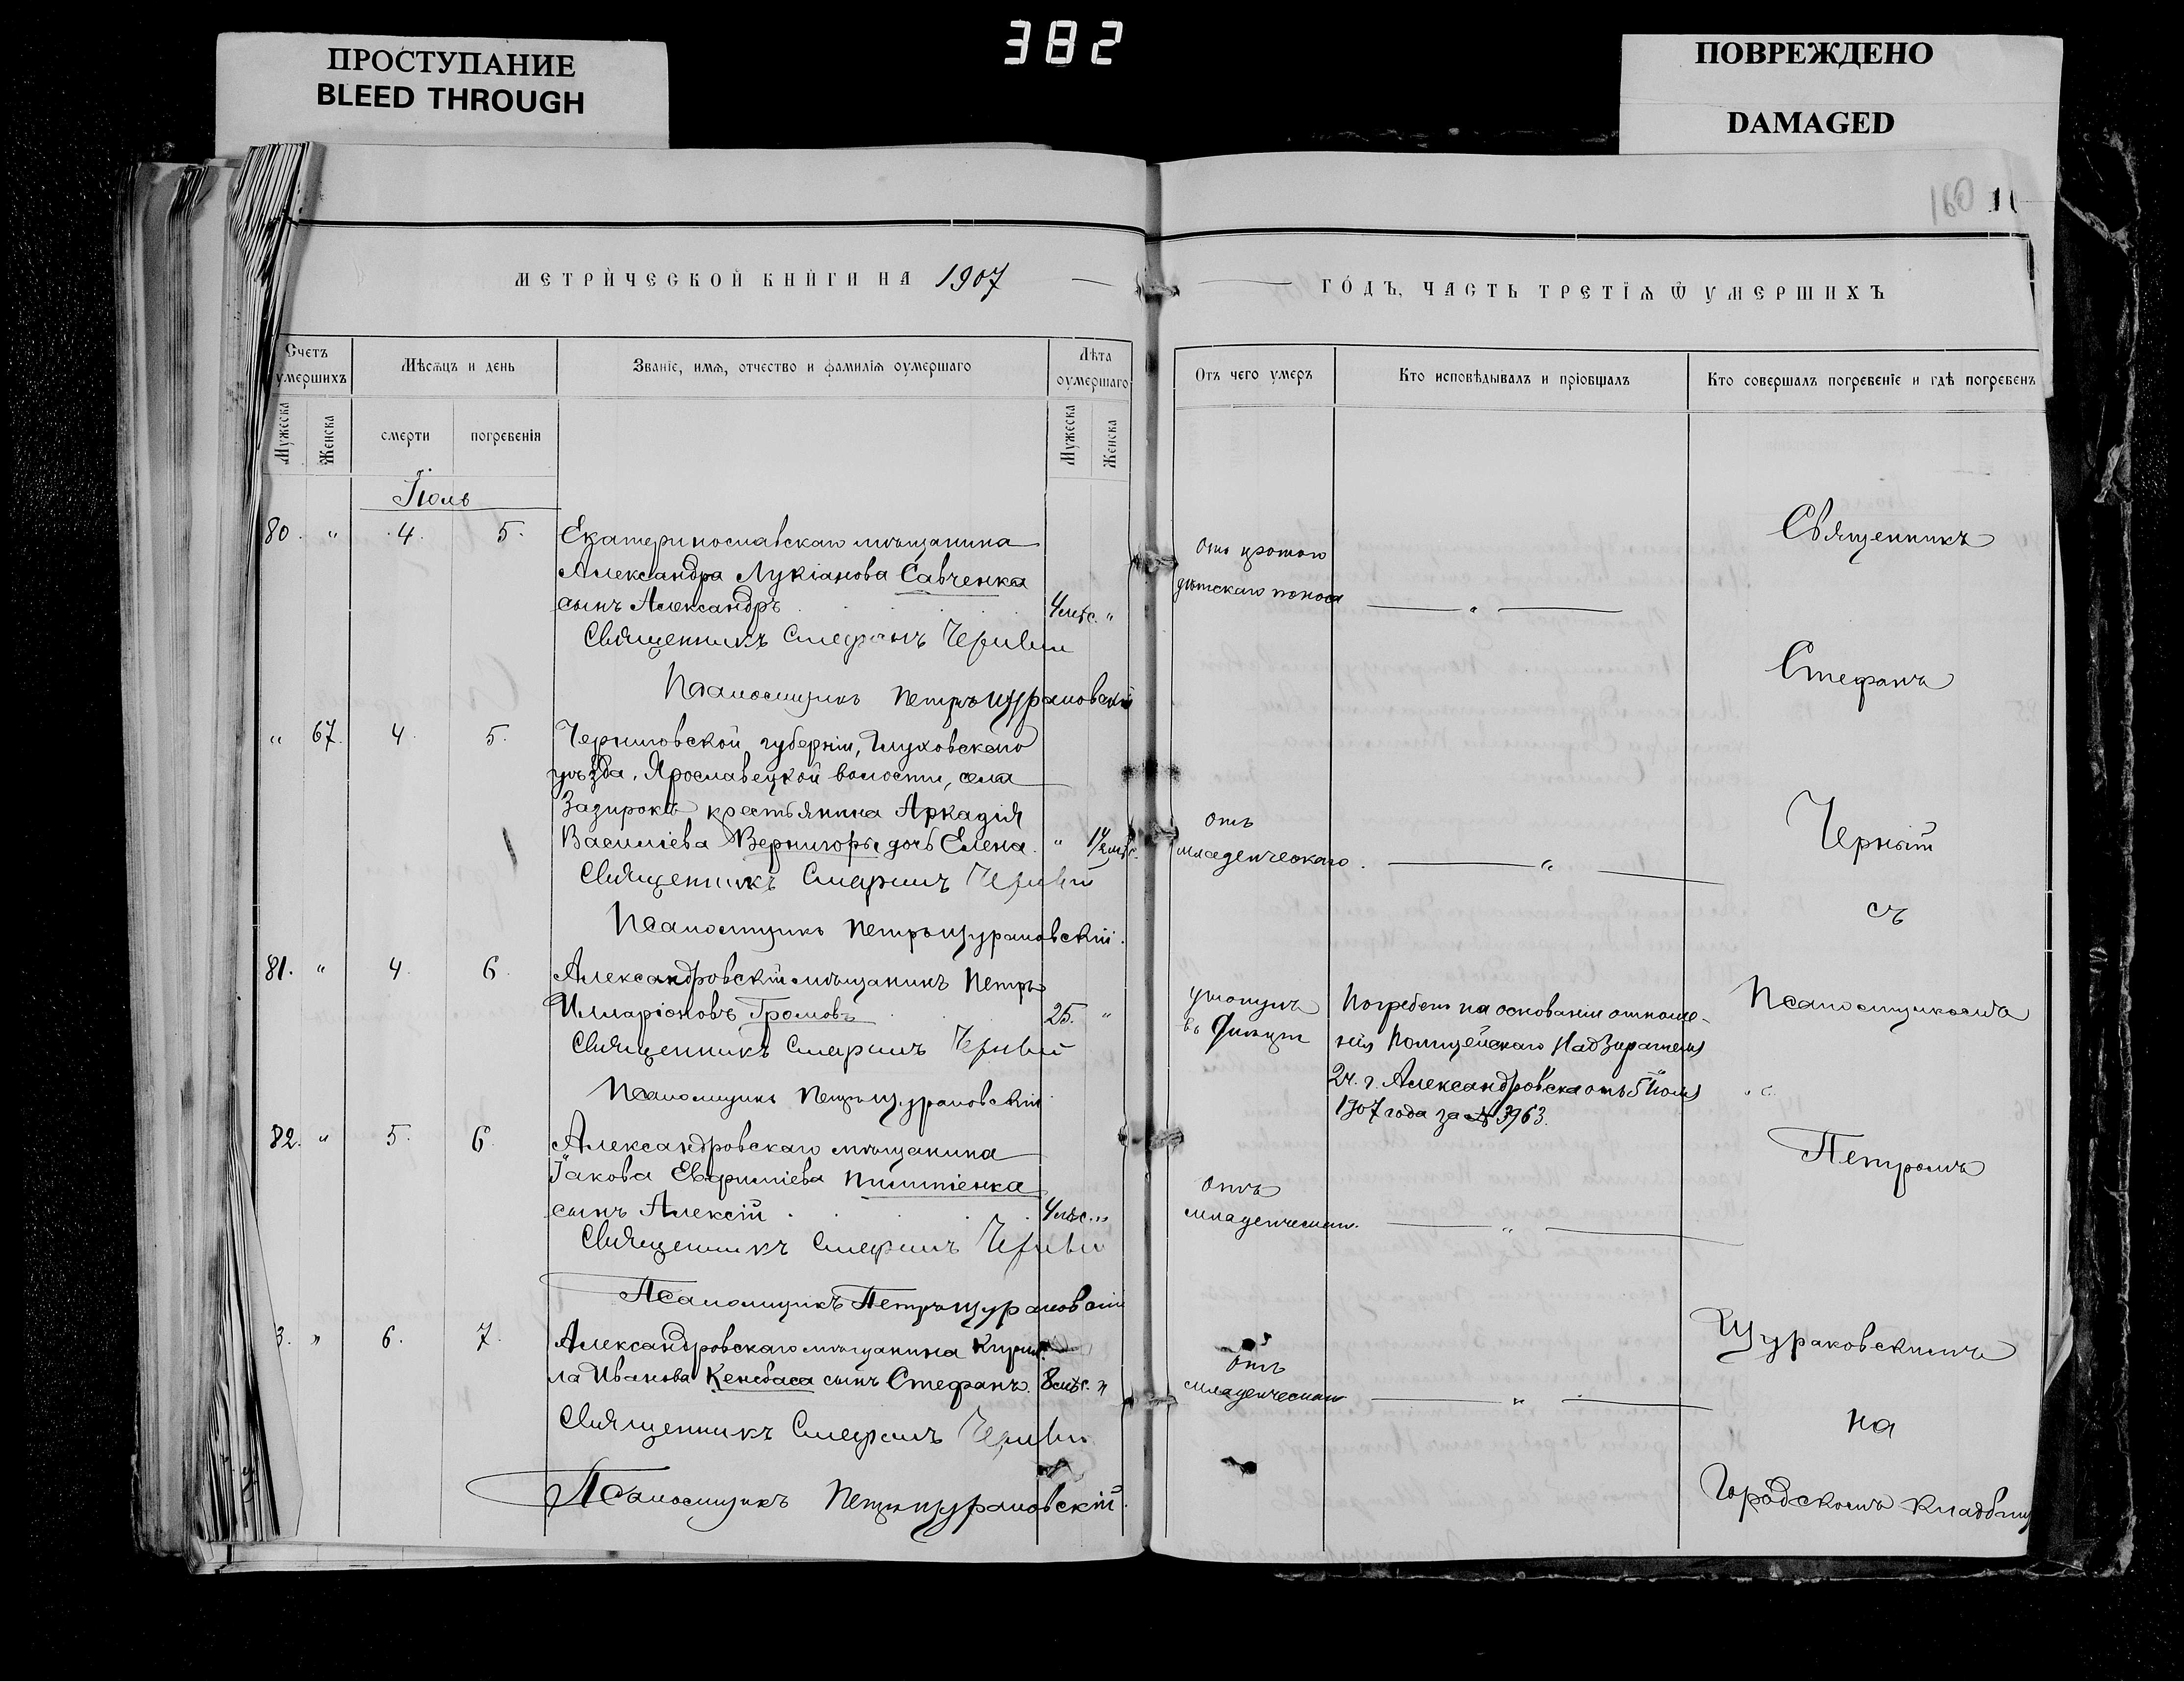 382
ПРОСТУПАНИЕ
BLEED THROUGH
ПОВРЕЖДЕНО
DAMAGED
160
МЕТРИ́ЧЕСКОЙ КНИ́ГИ НА 1907
Счетъ
умершихъ
Мѣсѧцъ и день
Званіе, имѧ, отчество и фамиліѧ оумершаго
Лѣта
оумершаго
Мужеска
Женска
смерти
погребенія
Мужеска
Женска
Іюль
80. " 4. 5. Екатеринославскаго мѣщанина
Александра Лукіанова Савченка
сынъ Александръ 4 мѣс. "
Священникъ Стефанъ Черный
Псаломщикъ Петръ Щураковскій
" 67. 4. 5. Черниговской губерніи, Глуховскаго
уѣзда, Ярославецкой волости, села
Зазирокъ крестьянина Аркадія
Василіева Вернигоры дочь Елена. "
Священникъ Стефанъ Черный
Псаломщикъ Петръ Щураковскій.
81. " 4. 6. Александровскій мѣщанинъ Петръ
Илларіоновъ Громовъ 25. "
Священникъ Стефанъ Черный
Псаломщикъ Петръ Щураковскій
82. " 5. 6. Александровскаго мѣщанина
Іакова Евфиміева
сынъ Алексій 4 мѣс. "
Священникъ Стефанъ Черный
Псаломщикъ Петръ Щураковскій
3. " 6. 7. Александровскаго мѣщанина Кирил
ла Иванова сынъ Стефанъ. 8 мѣс. "
Священникъ Стефанъ Черный
Псаломщикъ Петръ Щураковскій.
ГО́ДЪ, ЧАСТЬ ТРЕТІѦ Ѿ УМЕРШИХЪ
Отъ чего умеръ
Кто исповѣдывалъ и пріобщалъ
Кто совершалъ погребеніе и гдѣ погребенъ
Отъ
дѣтскаго поноса "
отъ
младенческаго. "
утонулъ
въ
Погребенъ на основаніи отноше-
нія Полицейскаго Надзирателя
2 ч. г. Александровска отъ 5 Іюля
1907 года за № 3963.
Отъ
младенческаго. "
Отъ
младенческаго "
Священникъ
Стефанъ
Черный
съ
Псаломщикомъ
Петромъ
Щураковскимъ
на
Городскомъ кладбищ